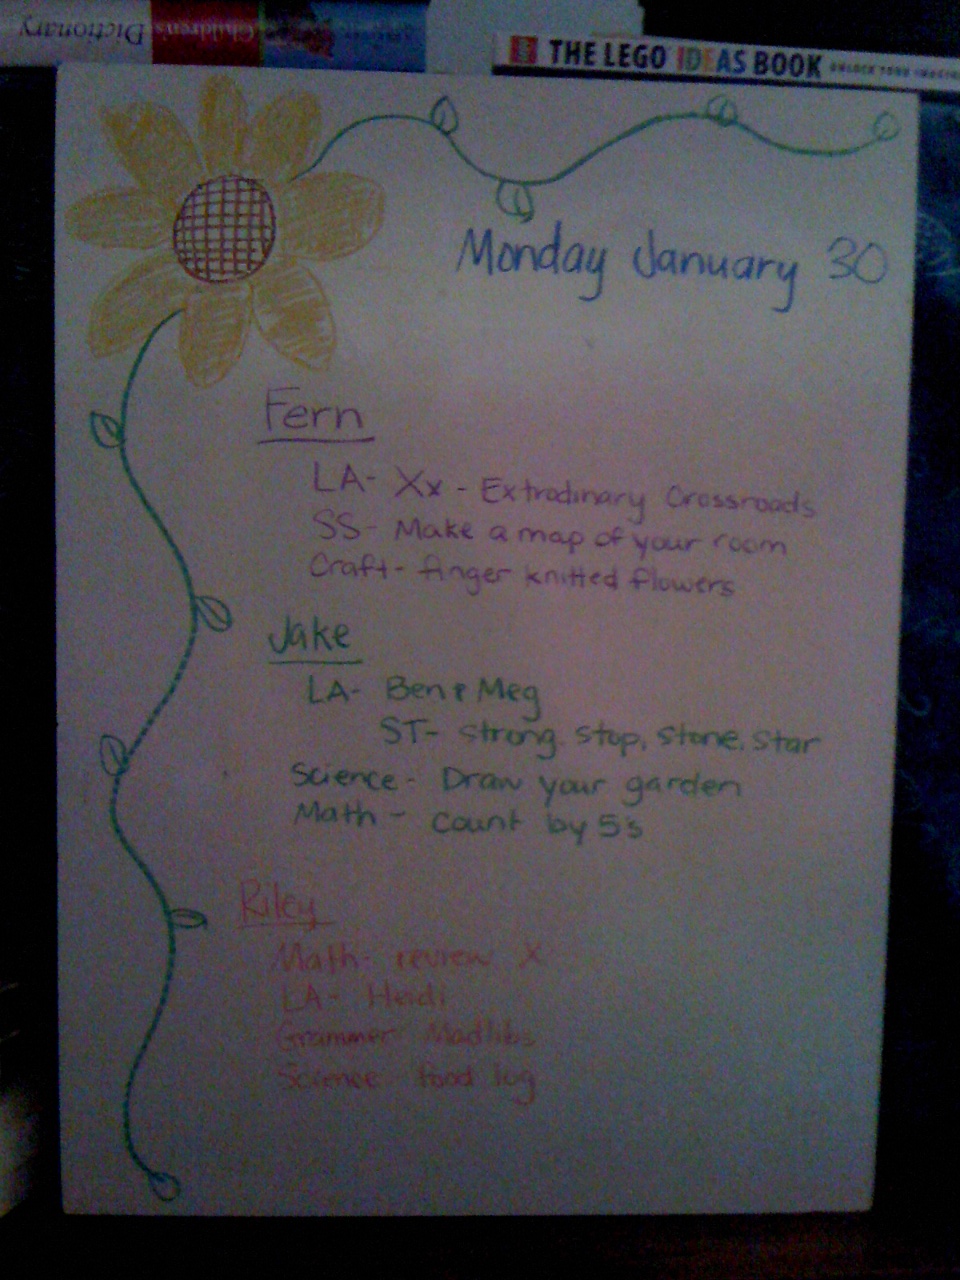 Children's Dictionary
THE LEGO IDEAS BOOK
Monday January 30
Fern
LA- Xx - Extrodinary Crossroads
SS- Make a map of your room
Craft- finger knitted flowers
Jake
LA- Ben & Meg
ST- strong, stop, stone, star
Science- Draw your garden
Math- count by 5's
Riley
Math- review X
LA- Heidi
Grammer- Madlibs
Science- food log